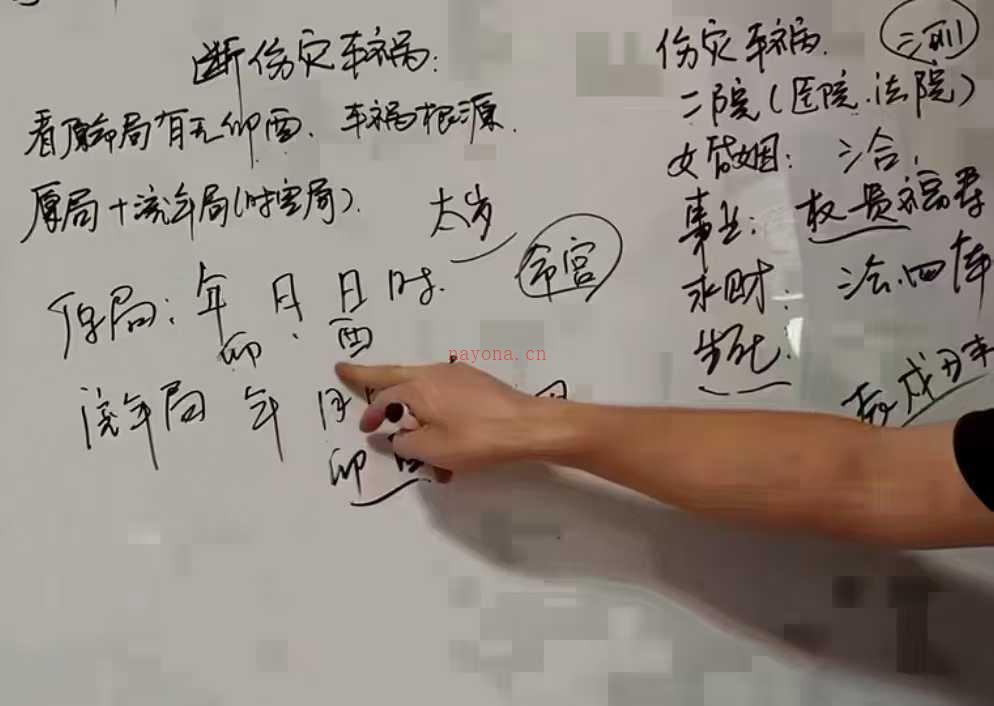 断伤灾车祸:
看原命局有无卯酉、车祸根源.
原局+流年局(时空局).
太岁
命宫
原局: 年 月 日 时.
卯 酉
流年局 年 月
卯
伤灾车祸. 三刑
二院(医院.法院)
女婚姻: 三合,
事业: 权贵福寿
求财: 四库
生死.
辰戌丑未
nayona.cn